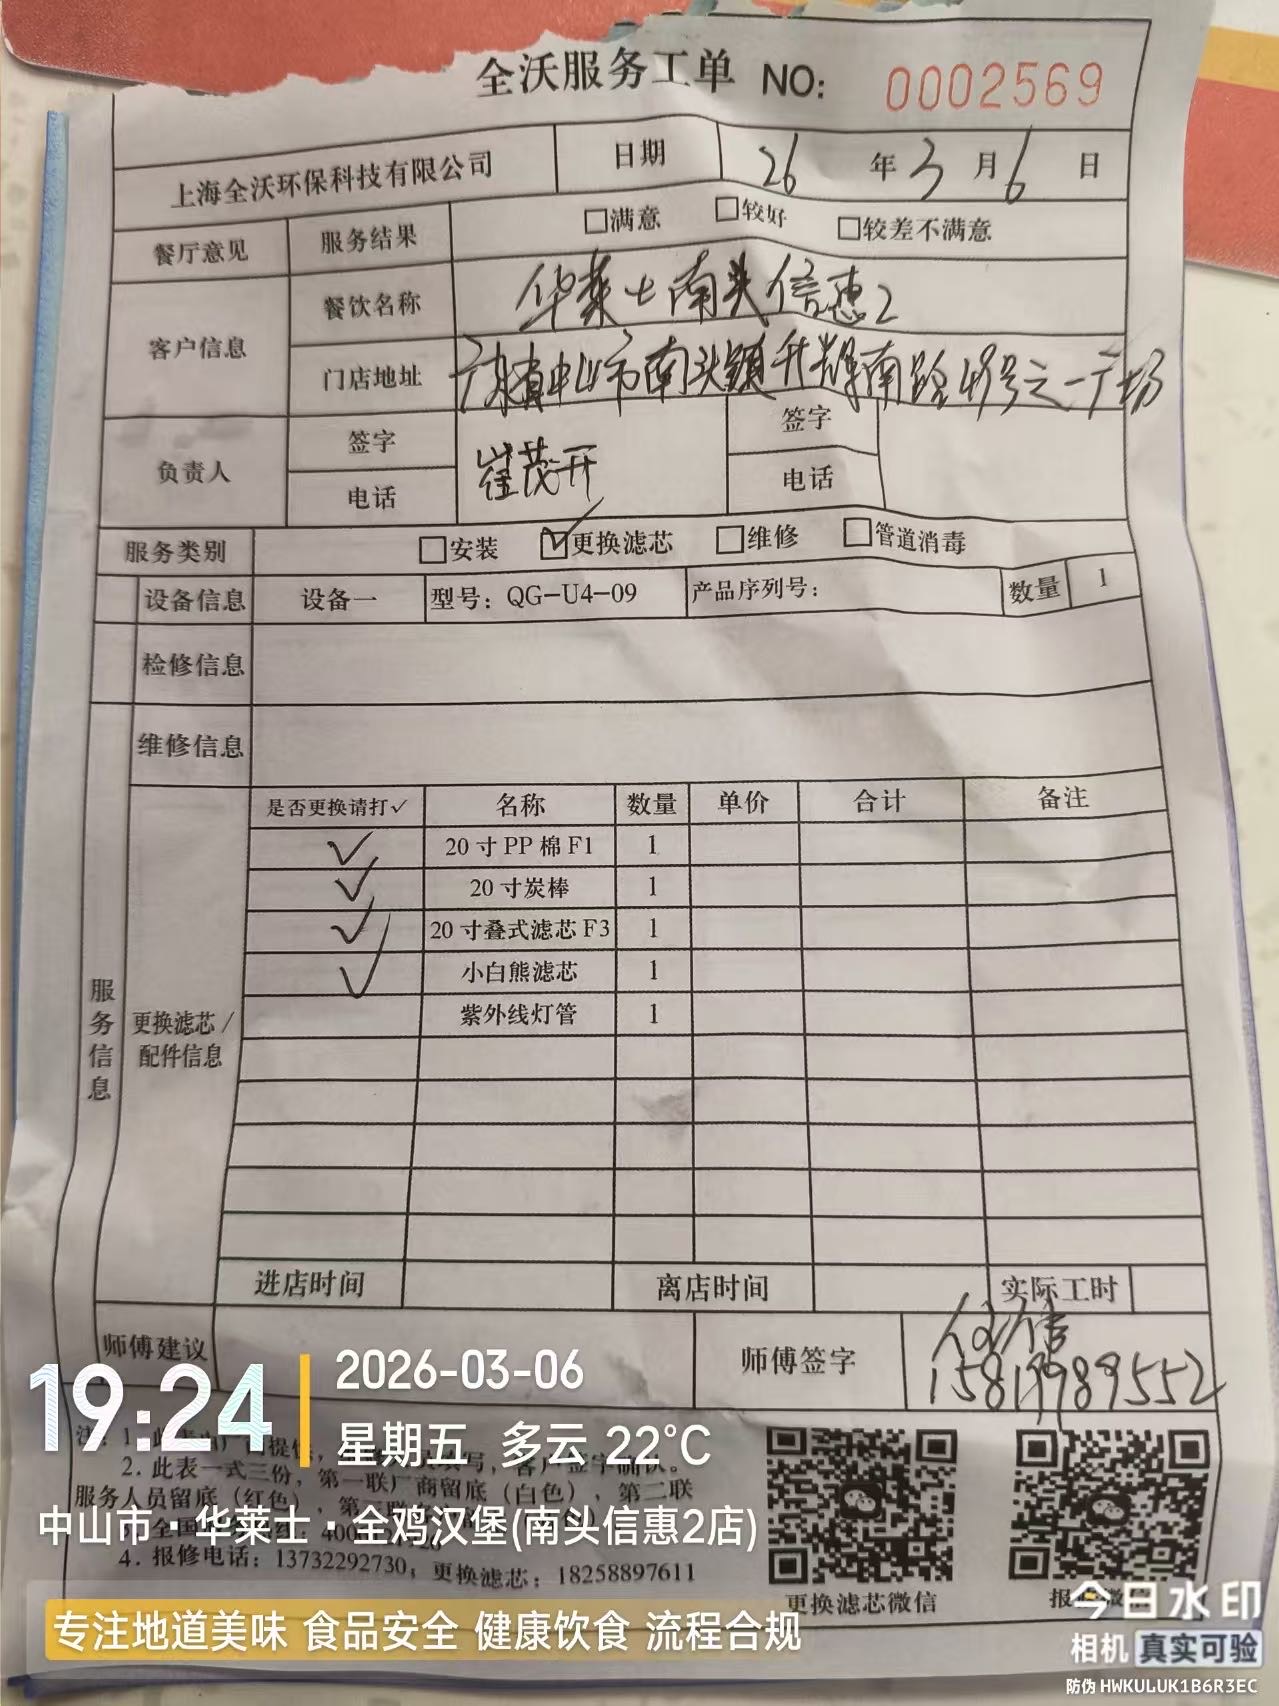 全沃服务工单 NO: 0002569
上海全沃环保科技有限公司 日期 26 年 3 月 6 日
餐厅意见 服务结果 □满意 □较好 □较差不满意
客户信息 餐饮名称 华莱士南头信惠2
门店地址 广东省中山市南头镇升辉南路49号之一广场
负责人 签字 崔茂开 签字
电话 电话
服务类别 □安装 ☑更换滤芯 □维修 □管道消毒
设备信息 设备一 型号：QG-U4-09 产品序列号： 数量 1
检修信息
维修信息
服务信息
更换滤芯/配件信息
是否更换请打✓ 名称 数量 单价 合计 备注
✓ 20寸PP棉F1 1
✓ 20寸炭棒 1
✓ 20寸叠式滤芯F3 1
✓ 小白熊滤芯 1
紫外线灯管 1
进店时间 离店时间 实际工时
师傅建议 师傅签字
15819989552
19:24 2026-03-06
星期五 多云 22°C
注：1.
2. 此表一式三份，第一联厂商留底（白色），第二联
服务人员留底（红色），第
中山市·华莱士·全鸡汉堡(南头信惠2店)
4. 报修电话：13732292730；更换滤芯：18258897611
更换滤芯微信
专注地道美味 食品安全 健康饮食 流程合规
今日水印
相机 真实可验
防伪 HWKULUK1B6R3EC